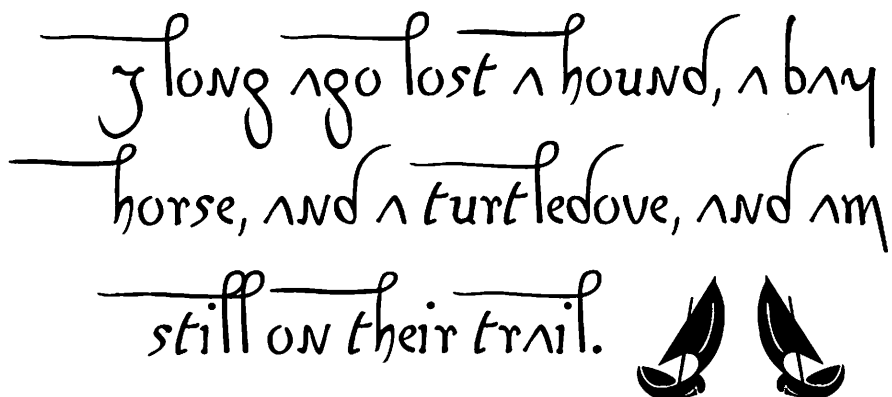 I long ago lost a hound, a bay
horse, and a turtledove, and am
still on their trail.